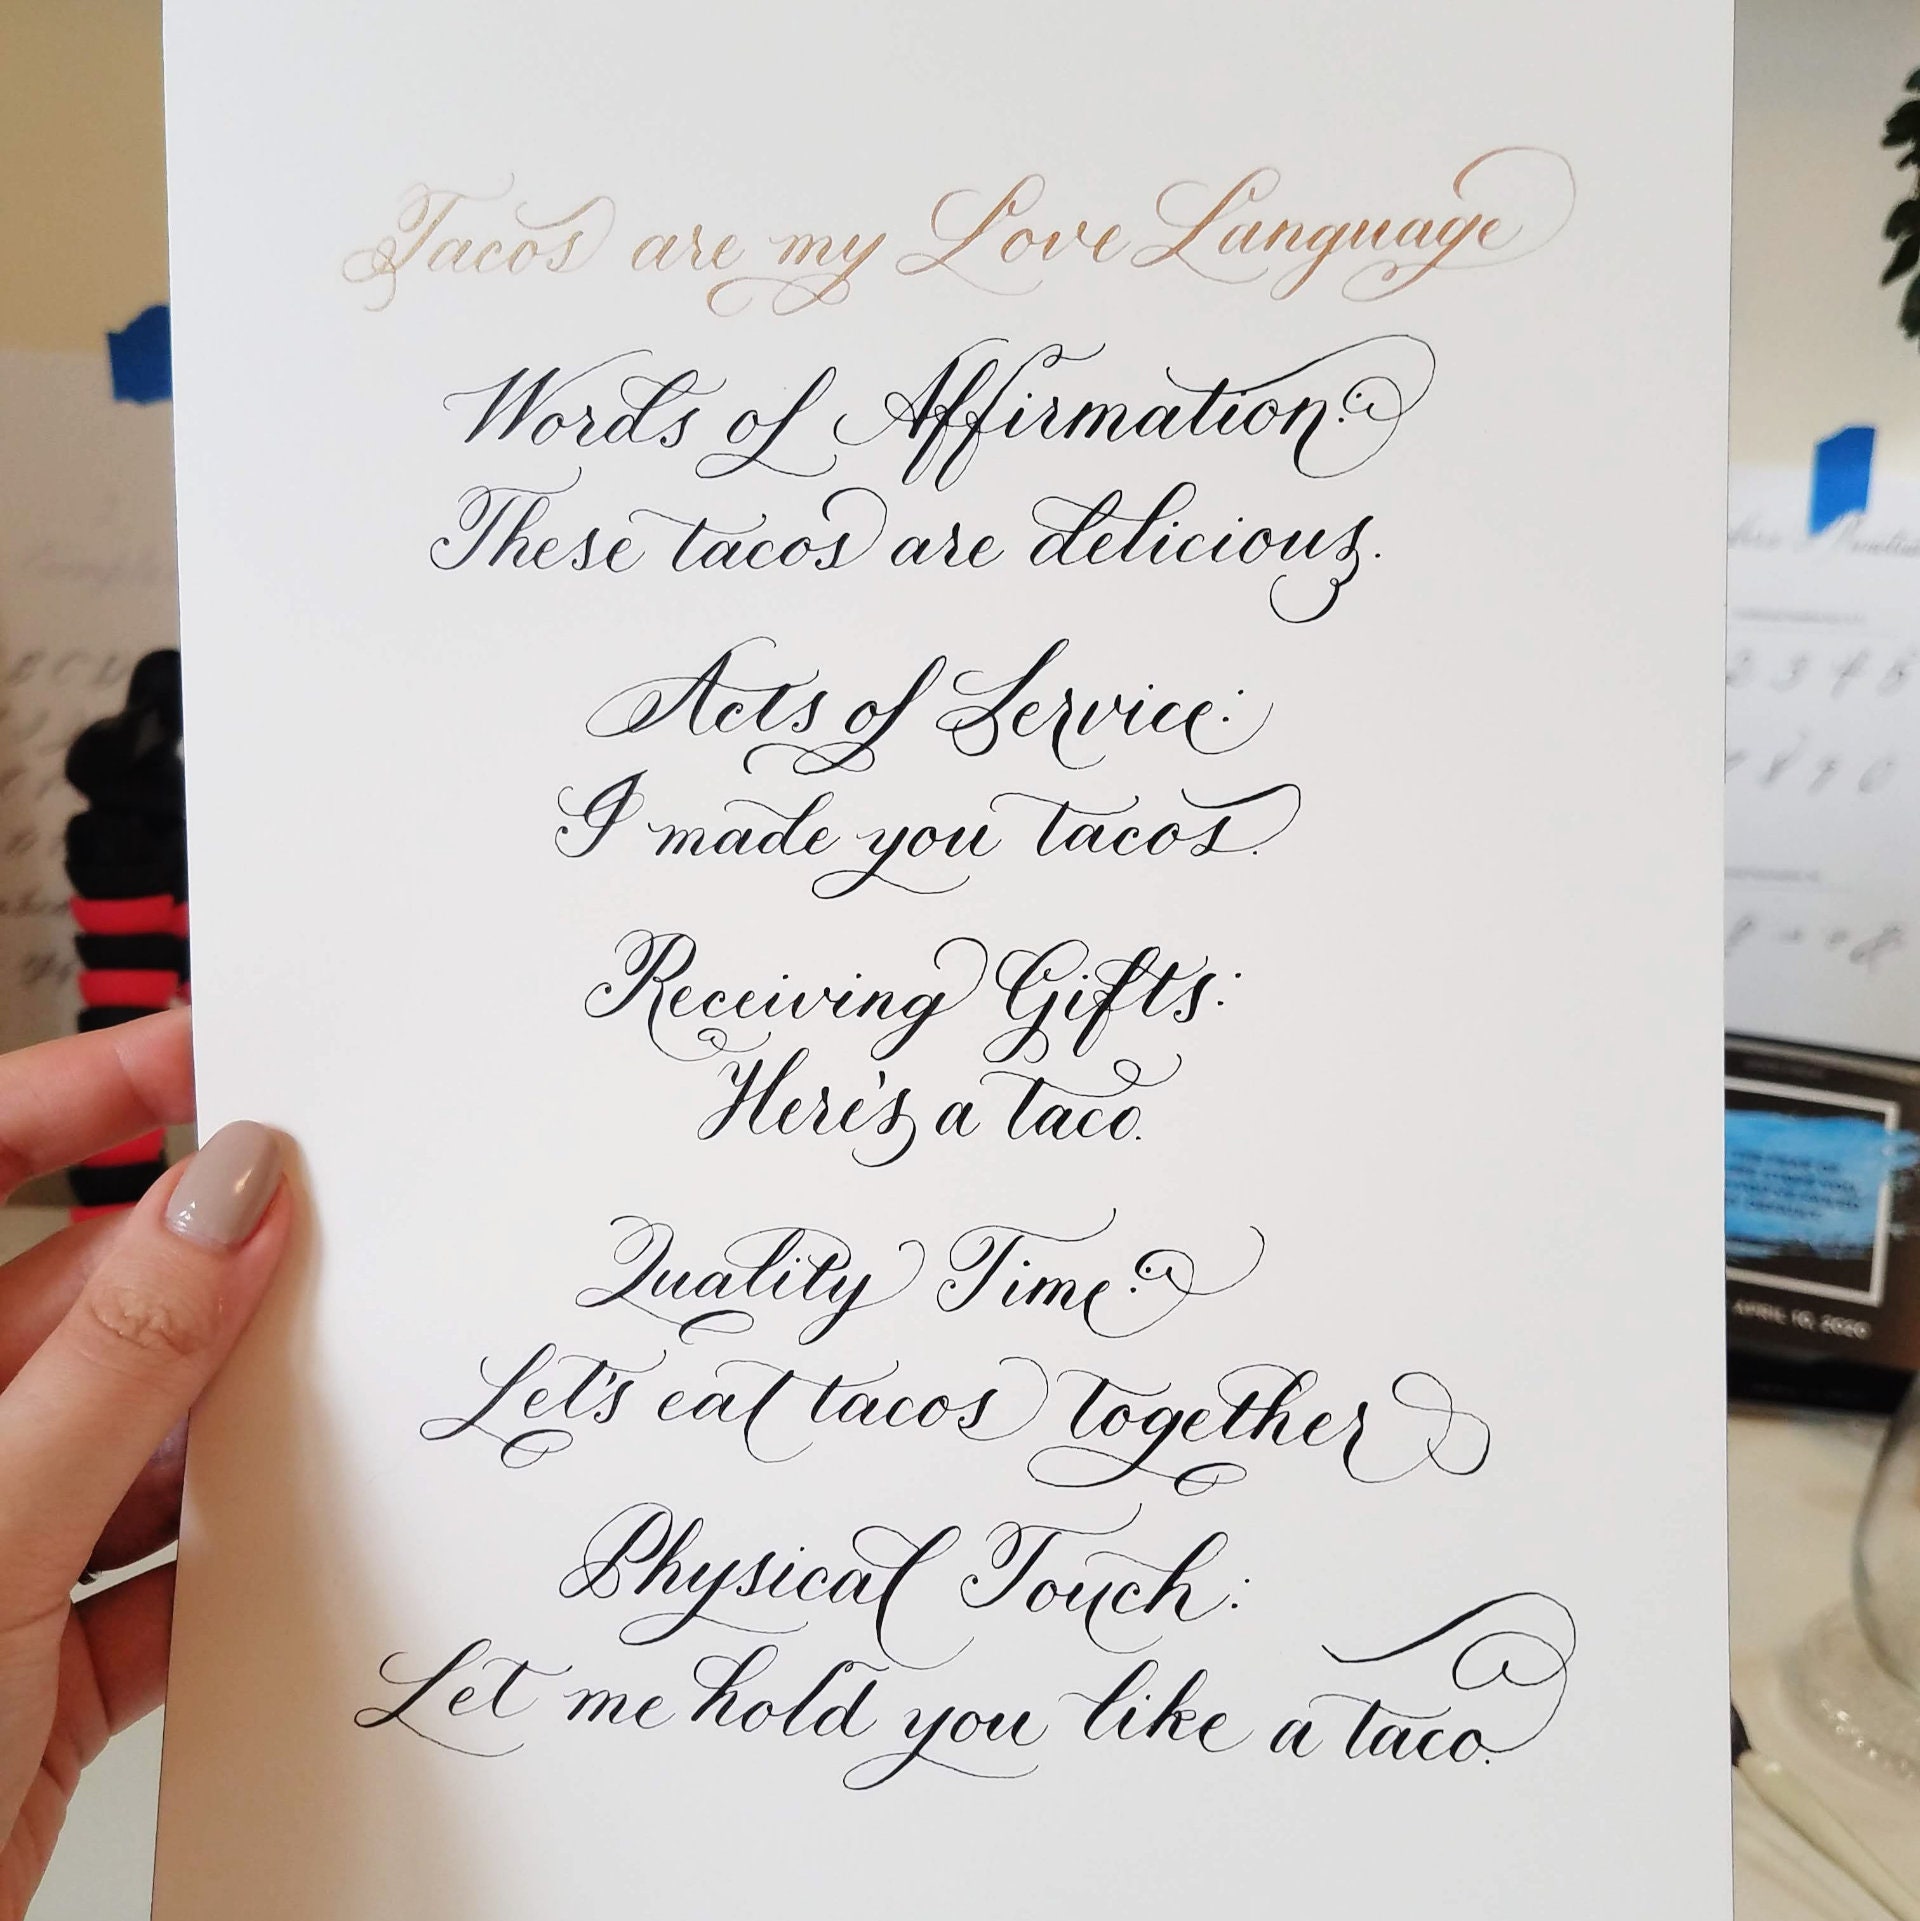 Tacos are my Love Language
Words of Affirmation:
These tacos are delicious.
Acts of Service:
I made you tacos.
Receiving Gifts:
Here's a taco.
Quality Time:
Let's eat tacos together
Physical Touch:
Let me hold you like a taco.
APRIL 10, 2020